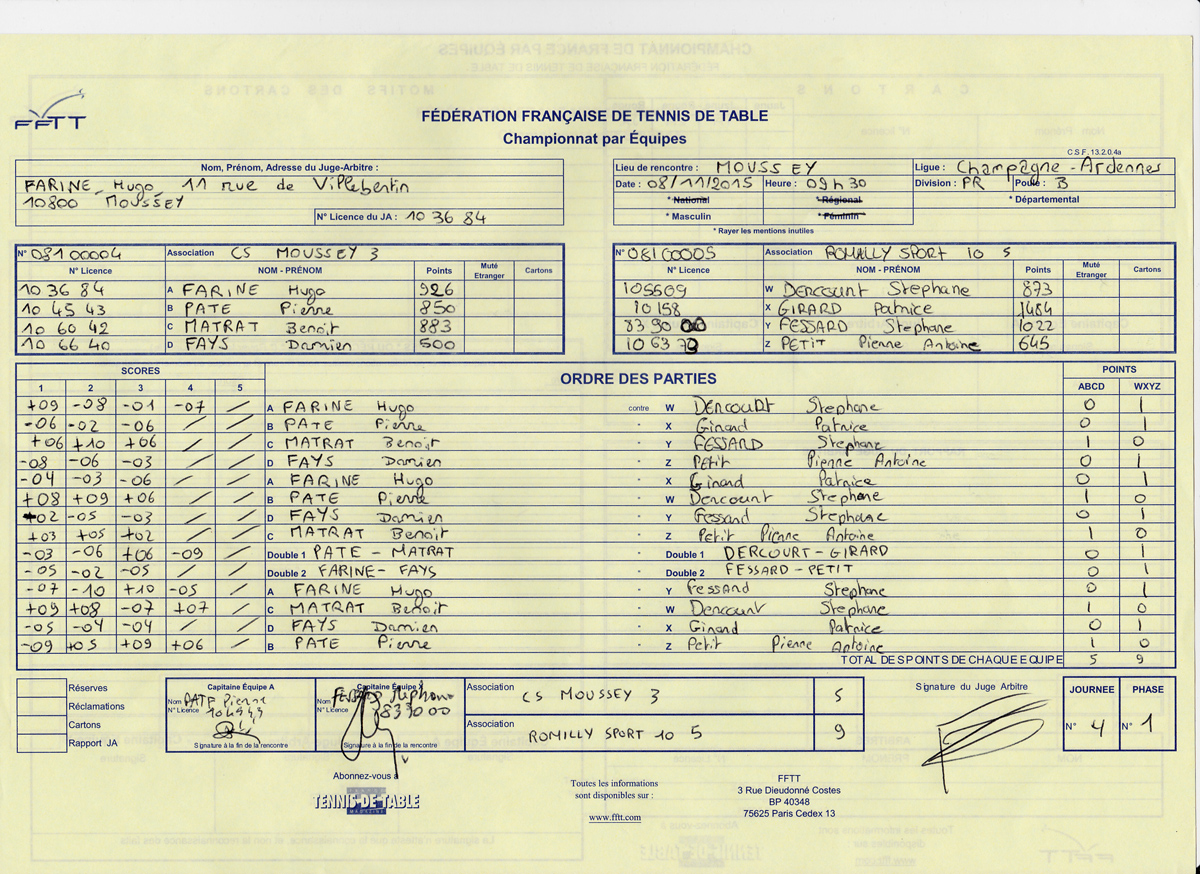 FFTT
FÉDÉRATION FRANÇAISE DE TENNIS DE TABLE
Championnat par Équipes
C.S.F. 13.2.0.4a
Nom, Prénom, Adresse du Juge-Arbitre :
FARINE Hugo, 11 rue de Villebertin
10800 MOUSSEY
N° Licence du JA : 10 36 84
Lieu de rencontre : MOUSSEY Ligue : Champagne - Ardennes
Date : 08/11/2015 Heure : 09h30 Division : PR Poule : B
* National * Régional * Départemental
* Masculin * Féminin
* Rayer les mentions inutiles
N° 08100004 Association CS MOUSSEY 3
N° Licence NOM - PRÉNOM Points Muté Etranger Cartons
10 36 84 A FARINE Hugo 926
10 45 43 B PATE Pierre 850
10 60 42 C MATRAT Benoit 883
10 66 40 D FAYS Damien 500
N° 08100005 Association ROMILLY SPORT 10 5
N° Licence NOM - PRÉNOM Points Muté Etranger Cartons
105509 W DERCOURT Stephane 873
10 158 X GIRARD Patrice 1484
83 90 00 Y FESSARD Stephane 1022
10 63 70 Z PETIT Pierre Antoine 645
SCORES ORDRE DES PARTIES POINTS
1 2 3 4 5 ABCD WXYZ
+09 -08 -01 -07 / A FARINE Hugo contre W DERCOURT Stephane 0 1
-06 -02 -06 / / B PATE Pierre - X Girard Patrice 0 1
+06 +10 +06 / / C MATRAT Benoit - Y FESSARD Stephane 1 0
-08 -06 -03 / / D FAYS Damien - Z Petit Pierre Antoine 0 1
-04 -03 -06 / / A FARINE Hugo - X Girard Patrice 0 1
+08 +09 +06 / / B PATE Pierre - W Dercourt Stephane 1 0
-02 -05 -03 / / D FAYS Damien - Y Fessard Stephane 0 1
+03 +05 +02 / / C MATRAT Benoit - Z Petit Pierre Antoine 1 0
-03 -06 +06 -09 / Double 1 PATE - MATRAT - Double 1 DERCOURT - GIRARD 0 1
-05 -02 -05 / / Double 2 FARINE - FAYS - Double 2 FESSARD - PETIT 0 1
-07 -10 +10 -05 / A FARINE Hugo - Y Fessard Stephane 0 1
+09 +08 -07 +07 / C MATRAT Benoit - W Dercourt Stephane 1 0
-05 -04 -04 / / D FAYS Damien - X Girard Patrice 0 1
-09 +05 +09 +06 / B PATE Pierre - Z Petit Pierre Antoine 1 0
TOTAL DES POINTS DE CHAQUE EQUIPE 5 9
Réserves
Réclamations
Cartons
Rapport JA
Capitaine Équipe A
Nom PATE Pierre
N° Licence 104543
Signature à la fin de la rencontre
Capitaine Équipe
Nom Stephane
N° Licence 839000
Signature à la fin de la rencontre
Association CS MOUSSEY 3 5
Association ROMILLY SPORT 10 5 9
Signature du Juge Arbitre
JOURNEE PHASE
N° 4 N° 1
Abonnez-vous à
TENNIS DE TABLE
Toutes les informations
sont disponibles sur :
www.fftt.com
FFTT
3 Rue Dieudonné Costes
BP 40348
75625 Paris Cedex 13